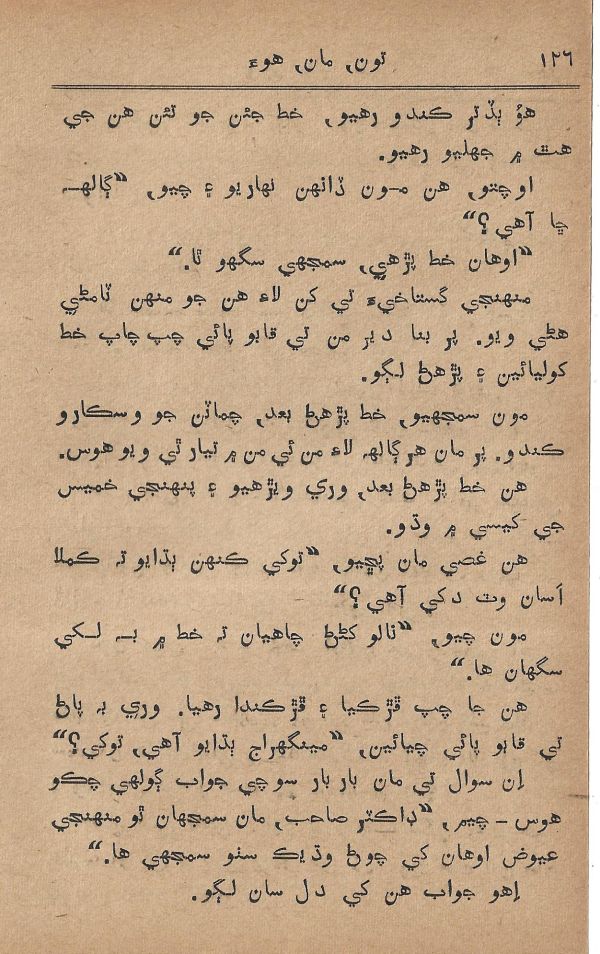 ۱۲٦
تون, مان, هوءَ
هوُ ٻڌتر ڪندو رهيو, خط جئن جو تئن هن جي
هٿ ۾ جهليو رهيو.
اوچتو, هن مون ڏانهن نهاريو ۽ چيو, ”ڳالهہ
ڇا آهي؟“
”اوهان خط پڙهي, سمجهي سگهو ٿا.“
منهنجي گستاخيءَ تي کن لاءِ هن جو منهن ٽامڻي
هڻي ويو. پر بنا دير من تي قابو پائي چپ چاپ خط
کوليائين ۽ پڙهڻ لڳو.
مون سمجهيو, خط پڙهڻ بعد, چماٽن جو وسڪارو
ڪندو. پر مان هر ڳالهہ لاءِ من ئي من ۾ تيار ٿي ويو هوس.
هن خط پڙهڻ بعد, وري ويڙهيو ۽ پنهنجي خميس
جي کيسي ۾ وڌو.
هن غصي مان پڇيو, ”توکي ڪنهن ٻڌايو تہ ڪملا
اَسان وٽ دکي آهي؟“
مون چيو, ”نالو کڻڻ چاهيان تہ خط ۾ بہ لکي
سگهان ها.“
هن جا چپ ڦڙڪيا ۽ ڦڙڪندا رهيا. وري بہ پاڻ
تي قابو پائي چيائين, ”مينگهراج ٻڌايو آهي, توکي؟“
اِن سوال تي مان بار بار سوچي جواب ڳولهي چڪو
هوس – چيم, ”ڊاڪٽر صاحب, مان سمجهان ٿو منهنجي
عيوض اوهان کي چوڻ وڌيڪ سٺو سمجهي ها.“
اِهو جواب هن کي دل سان لڳو.